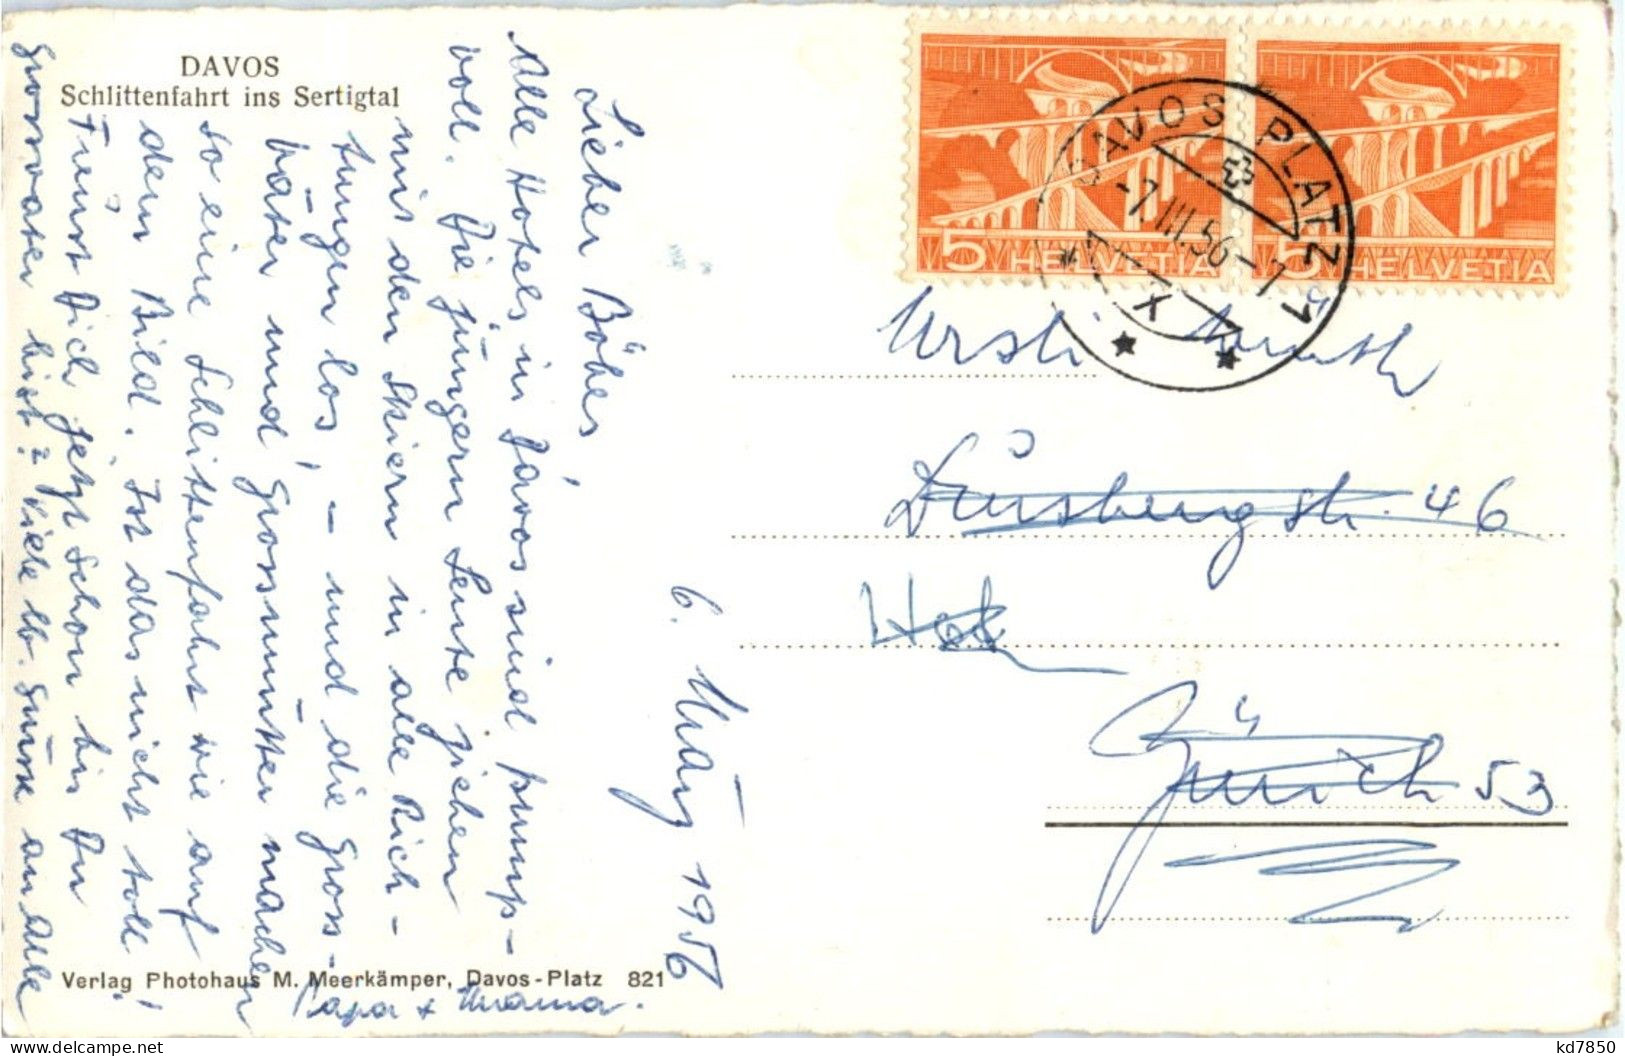 DAVOS
Schlittenfahrt ins Sertigtal
6. März 1956
Lieber Böbes,
Alle Hotels in Davos sind pump-
voll. Die jüngern Leute ziehen
mit den Skiern in alle Rich-
tungen los, – und die Gross-
väter und Grossmütter machen
so eine Schlittenfahrt wie auf
dem Bild. Ist das nicht toll!
Freust Dich jetzt schon bis Du
Grossvater bist? Viele lb. Grüsse an Alle
Papa + Mama.
5 HELVETIA
5 HELVETIA
DAVOS PLATZ 1
-7.III.56-7
X
Ursli
46
Zürich 53
Verlag Photohaus M. Meerkämper, Davos-Platz 821
kd7850
delcampe.net